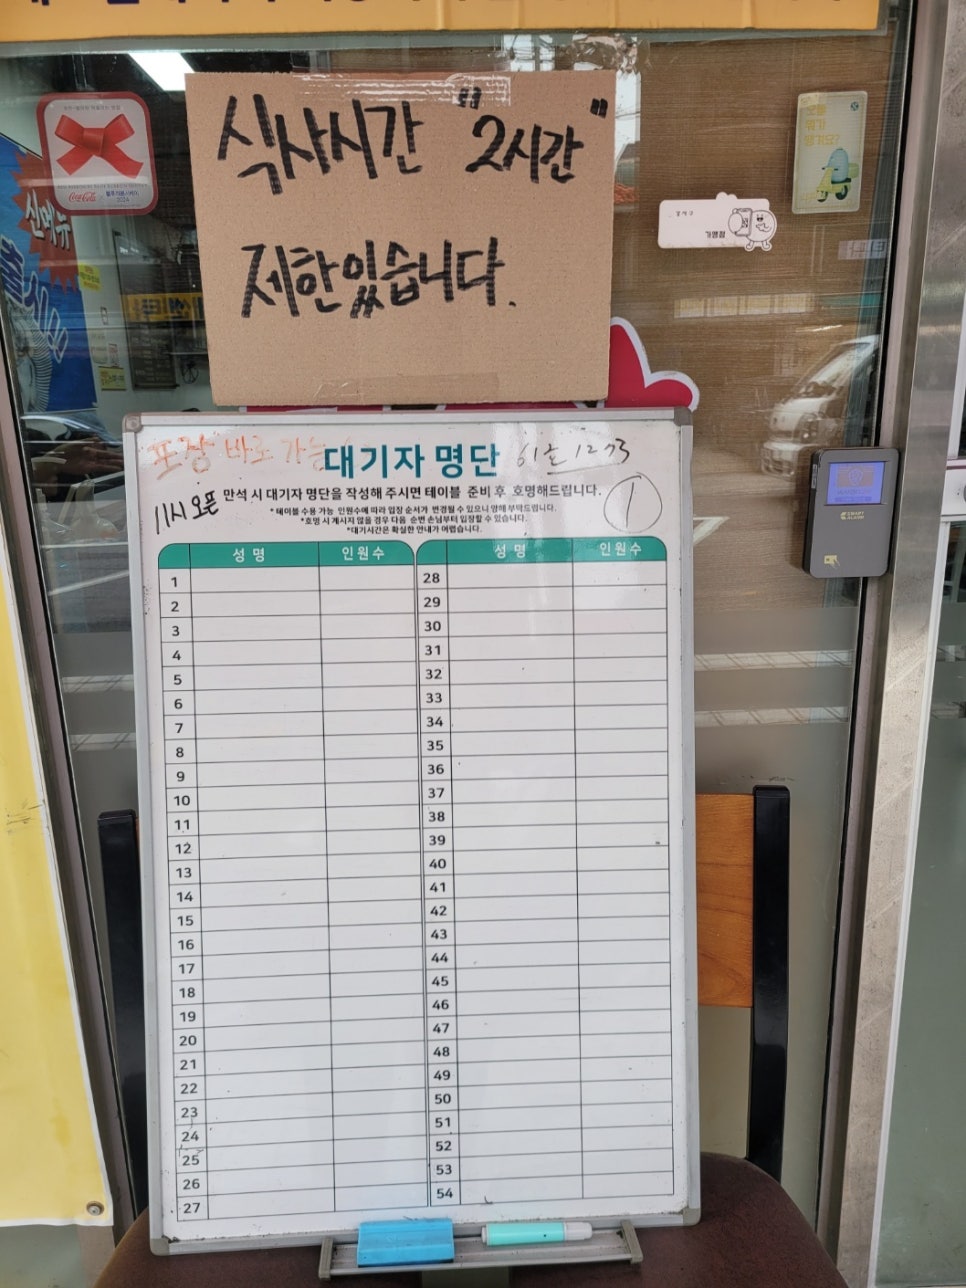 식사시간 "2시간"
제한있습니다.
오늘
뭐가
땡겨요?
가맹점
Coca-Cola
2024
신메뉴
출시
포장 바로 가능
대기자 명단
11시 오픈
만석 시 대기자 명단을 작성해 주시면 테이블 준비 후 호명해드립니다.
①
* 테이블 수용 가능 인원수에 따라 입장 순서가 변경될 수 있으니 양해 부탁드립니다.
*호명 시 계시지 않을 경우 다음 순번 손님부터 입장할 수 있습니다.
*대기시간은 확실한 안내가 어렵습니다.
성 명 인원수 성 명 인원수
1 28
2 29
3 30
4 31
5 32
6 33
7 34
8 35
9 36
10 37
11 38
12 39
13 40
14 41
15 42
16 43
17 44
18 45
19 46
20 47
21 48
22 49
23 50
24 51
25 52
26 53
27 54